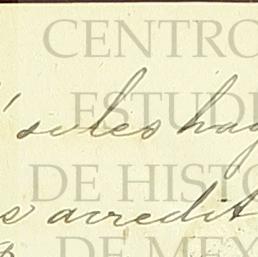 CENTRO
ESTUDI
soles hag
DE HISTO
s acredit
DE MEX